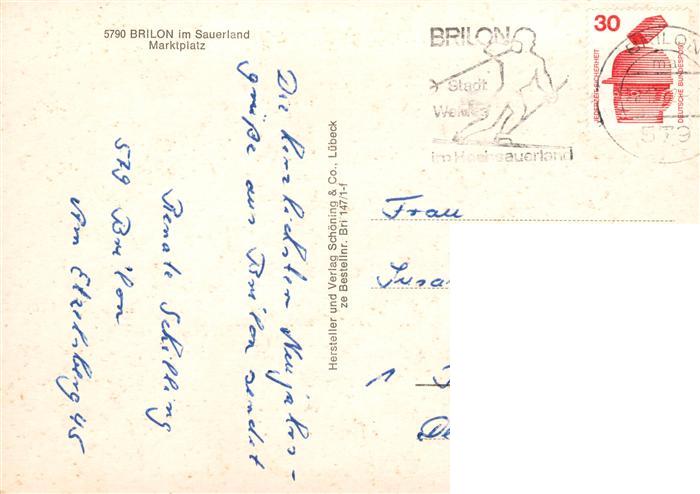 5790 BRILON im Sauerland
Marktplatz
Die herzlichsten Neujahrs-
grüße aus Brilon sendet
Renate Schilling
579 Brilon
Am Etzelsberg 45
Hersteller und Verlag Schöning & Co., Lübeck
ze Bestellnr. Bri 147/1-f
BRILON
Stadt
im Hochsauerland
30
JEDERZEIT SICHERHEIT
DEUTSCHE BUNDESPOST
BRILON
579
Frau
Susa
1